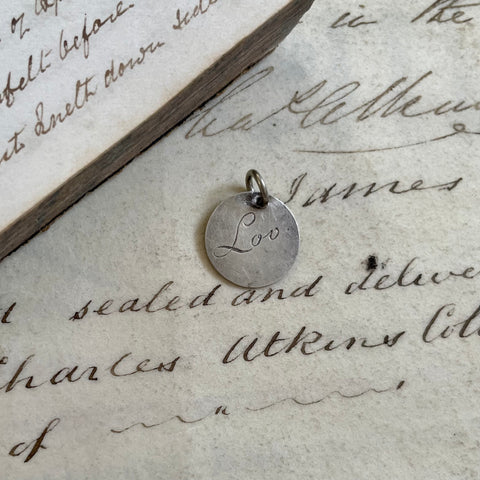 of
felt before
Knelt down side
in the
Chas Atkins
James
Lov
sealed and delive
Charles Atkins Col
of